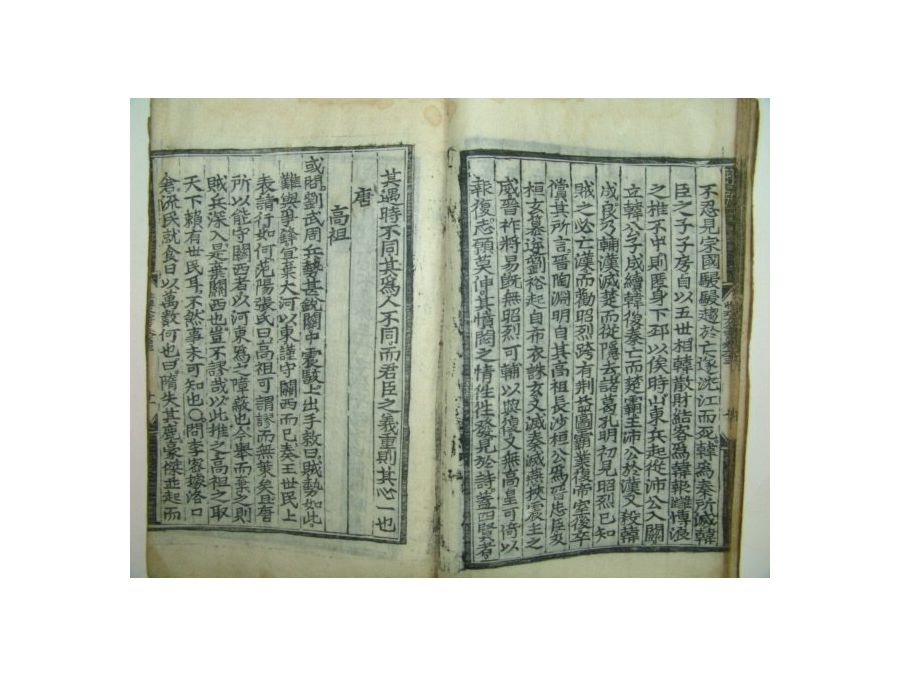 不忍見宗國駸駸趨於亡遂沈江而死韓爲秦所滅韓
臣之子子房自以五世相韓散財結客爲韓報讎博浪
之推不中則匿身下邳以俟時山東兵起從沛公入關
立韓公子成續韓後秦亡而楚霸王沛公於漢又殺韓
成良乃輔漢滅楚而從隱去諸葛孔明初見昭烈已知
賊之必亡漢而勸昭烈跨有荊益圖霸業復帝室後卒
償其所言晉陶淵明自其高祖長沙桓公爲晉忠臣及
桓玄簒逆劉裕起自布衣誅玄又滅秦滅燕挾震主之
威晉祚將易旣無昭烈可輔以興復又無高皇可倚以
報復志願莫伸其憤悶之情徃徃發見於詩蓋四賢者
其遇時不同其爲人不同而君臣之義重則其心一也
唐
高祖
或問劉武周兵勢甚銳關中震駭上出手敕曰賊勢如此
難與爭鋒宜棄大河以東謹守關西而已秦王世民上
表請行如何范陽張氏曰高祖可謂謬而無策矣且唐
所以能守關西者以河東爲之障蔽也今舉而棄之則
賊兵深入是棄關西也豈不謬哉以此推之高祖之取
天下賴有世民耳不然事未可知也○問李密據洛口
倉流民就食日以萬數何也曰隋失其鹿豪傑並起而